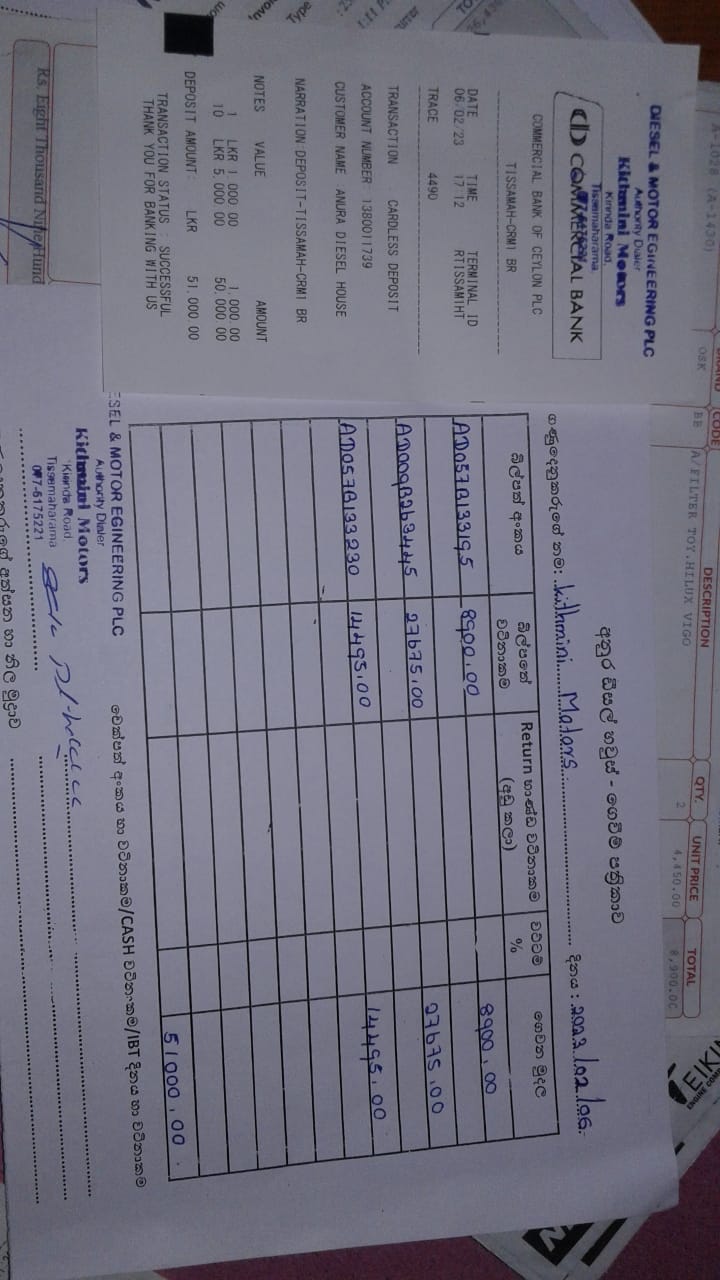 A-1028 (A-1430)
BRAND
CODE
DESCRIPTION
QTY.
UNIT PRICE
TOTAL
OSK
BE
A/FILTER TOY.HILUX VIGO
2
4,450.00
8,900.00
DIESEL & MOTOR EGINEERING PLC
Authority Dialer
Kithmini Motors
Kirinda Road,
Tissamaharama.
COMMERCIAL BANK
COMMERCIAL BANK OF CEYLON PLC
TISSAMAH-CRM1 BR
DATE TIME TERMINAL ID
06/02/23 17:12 RTISSAM1HT
TRACE 4490
TRANSACTION CARDLESS DEPOSIT
ACCOUNT NUMBER 1380011739
CUSTOMER NAME ANURA DIESEL HOUSE
NARRATION DEPOSIT-TISSAMAH-CRM1 BR
NOTES VALUE AMOUNT
1 LKR 1,000.00 1,000.00
10 LKR 5,000.00 50,000.00
DEPOSIT AMOUNT: LKR 51,000.00
TRANSACTION STATUS : SUCCESSFUL
THANK YOU FOR BANKING WITH US
අනුර ඩීසල් හවුස් - ගෙවීම් පත්‍රිකාව
ගණුදෙනුකරුගේ නම: Kithmini Motors. දිනය : 2023/02/06.
බිල්පත් අංකය බිල්පතේ වටිනාකම Return භාණ්ඩ වටිනාකම (අඩු කලා) වට්ටම් % ගෙවන මුදල
AD057B133195 8900.00 8900.00
AD009B263445 27675.00 27675.00
AD057B133230 14495.00 14495.00
51000.00
ESEL & MOTOR EGINEERING PLC
Authority Dialer
Kithmini Motors
Kirinda Road,
Tissamaharama
077-6175221
චෙක්පත් අංකය හා වටිනාකම/CASH වටිනාකම/IBT දිනය හා වටිනාකම
අත්සන හා නිල මුද්‍රාව
Rs. Eight Thousand Nine Hund